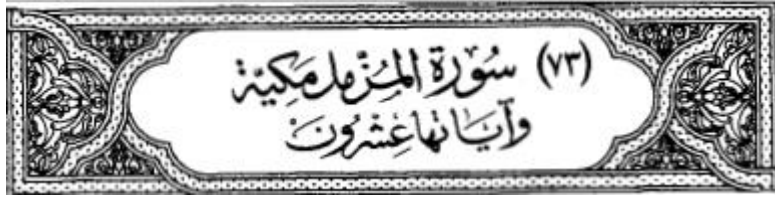 (٧٣) سُورَة المُزَّمِّل مَكِيَّة
وَآيَاتهَا عِشرُونَ